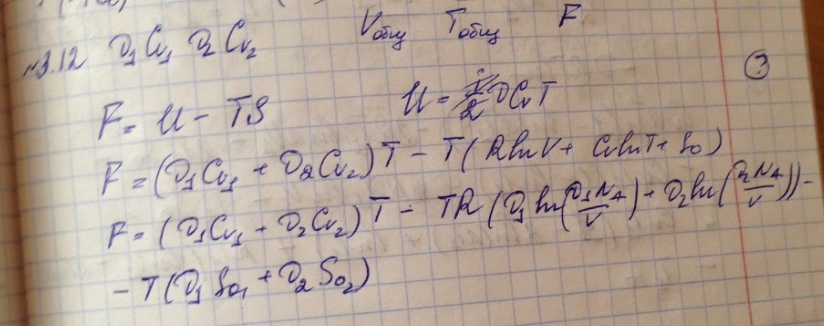 №3.12 ν₁ Cv₁ ν₂ Cv₂ Vобщ Tобщ F
F = U - TS U = νCvT
F = (ν₁Cv₁ + ν₂Cv₂)T - T(RlnV + CvlnT + S₀)
F = (ν₁Cv₁ + ν₂Cv₂)T - TR(ν₁ln(ν₁N_A/V) + ν₂ln(ν₂N_A/V)) -
- T(ν₁S₀₁ + ν₂S₀₂)